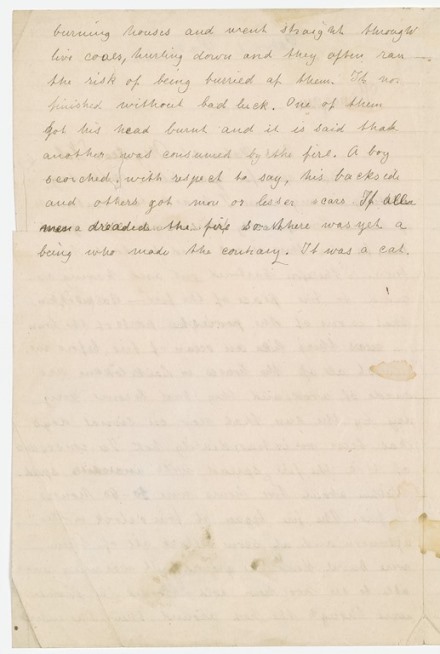 burning houses and went straight through
live coals, hurling down and they often ran
the risk of being burried at them. It not
finished without bad luck. One of them
Got his head burnt and it is said that
another was consumed by the fire. A boy
scorched, with respect to say, his backside
and others got more or lesser scars. If all
men dreaded the fire so there was yet a
being who made the contrary. It was a cat.